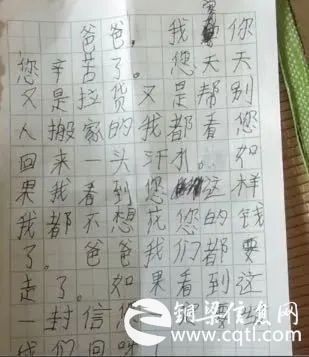 爸爸，我要你
您辛苦了。您天天
又是拉货又是帮别
人搬家的我都看您
回来一头汗水。如
果我看到您这样
我都不想花您的钱
了。爸爸我们都要
走了。如果看到这
一封信
我们回
铜梁信息网
www.cqtl.com